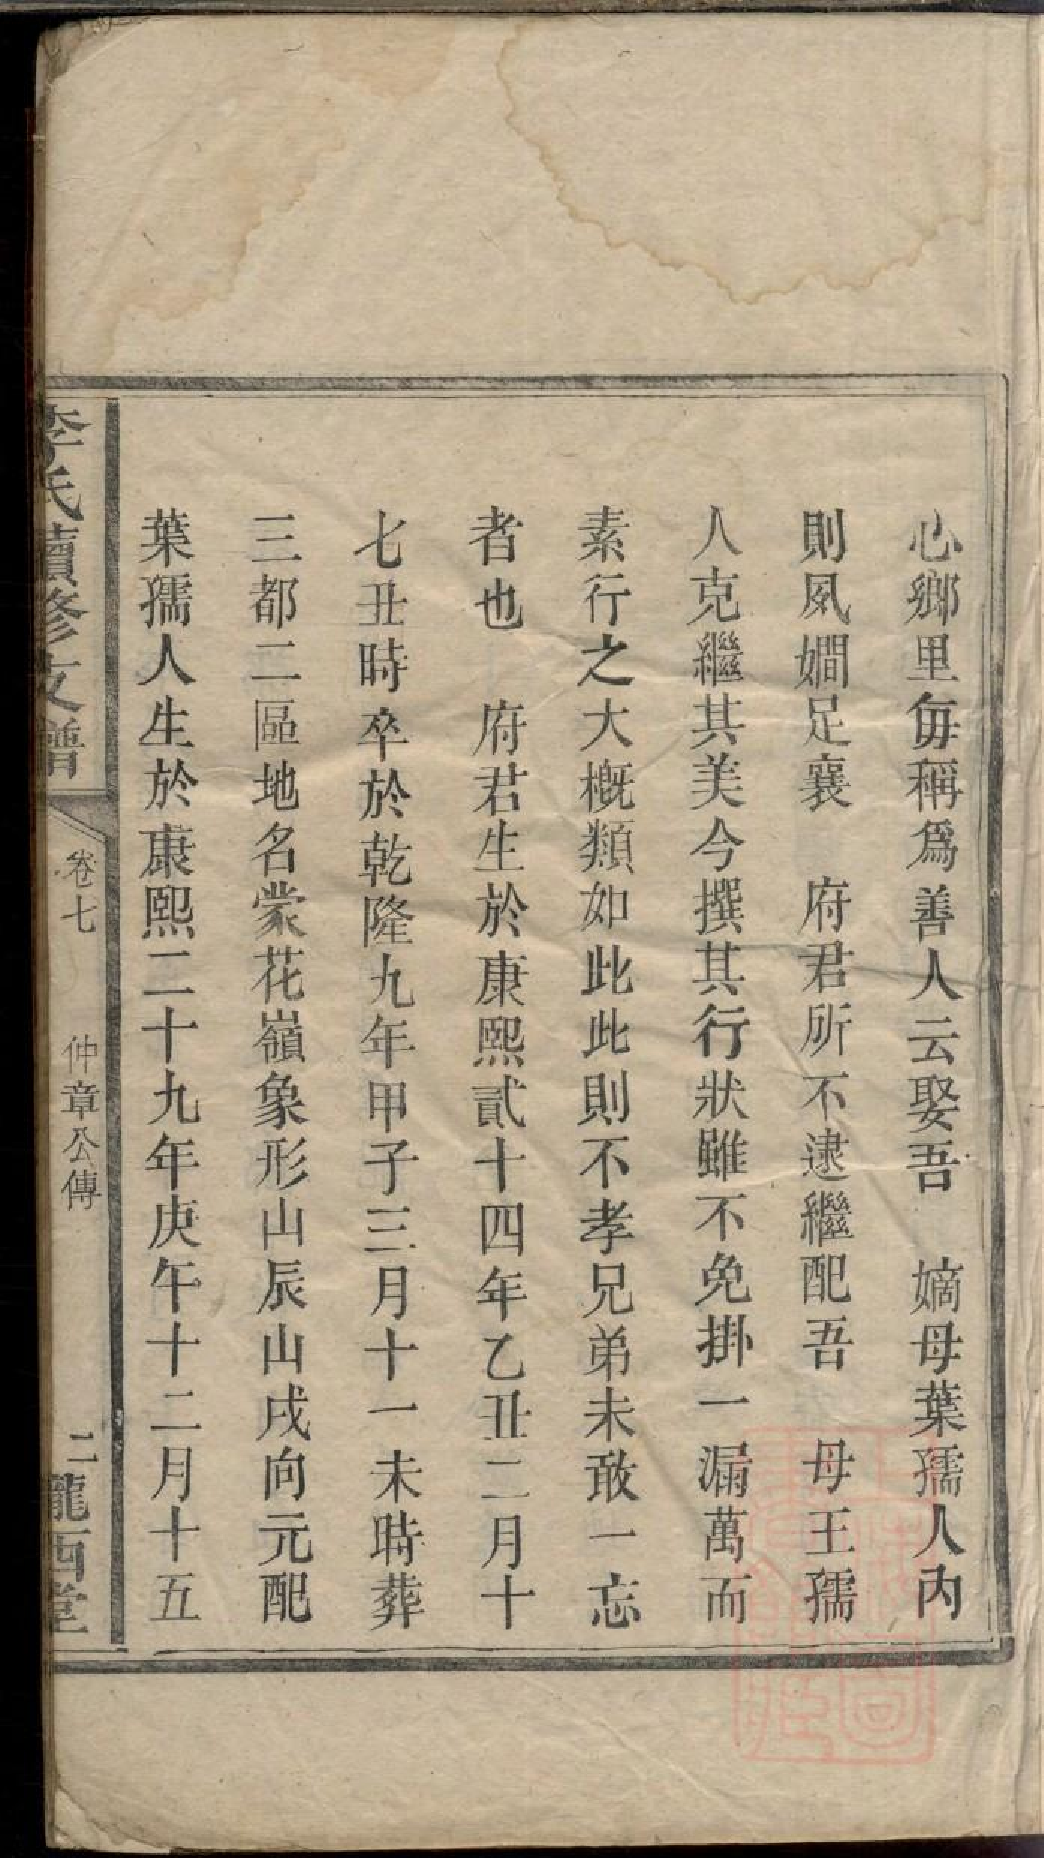 心鄉里每稱爲善人云娶吾　嫡母葉孺人內
則夙嫺足襄　府君所不逮繼配吾　母王孺
人克繼其美今撰其行狀雖不免掛一漏萬而
素行之大槪類如此此則不孝兄弟未敢一忘
者也　府君生於康熙貳十四年乙丑二月十
七丑時卒於乾隆九年甲子三月十一未時葬
三都二區地名棠花嶺象形山辰山戌向元配
葉孺人生於康熙二十九年庚午十二月十五
李氏續修支譜
卷七　仲章公傳　二
隴西堂